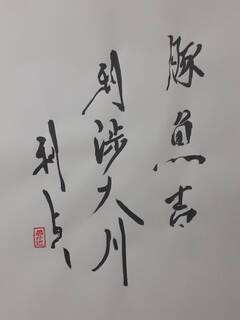 豚魚吉
利涉大川
利貞